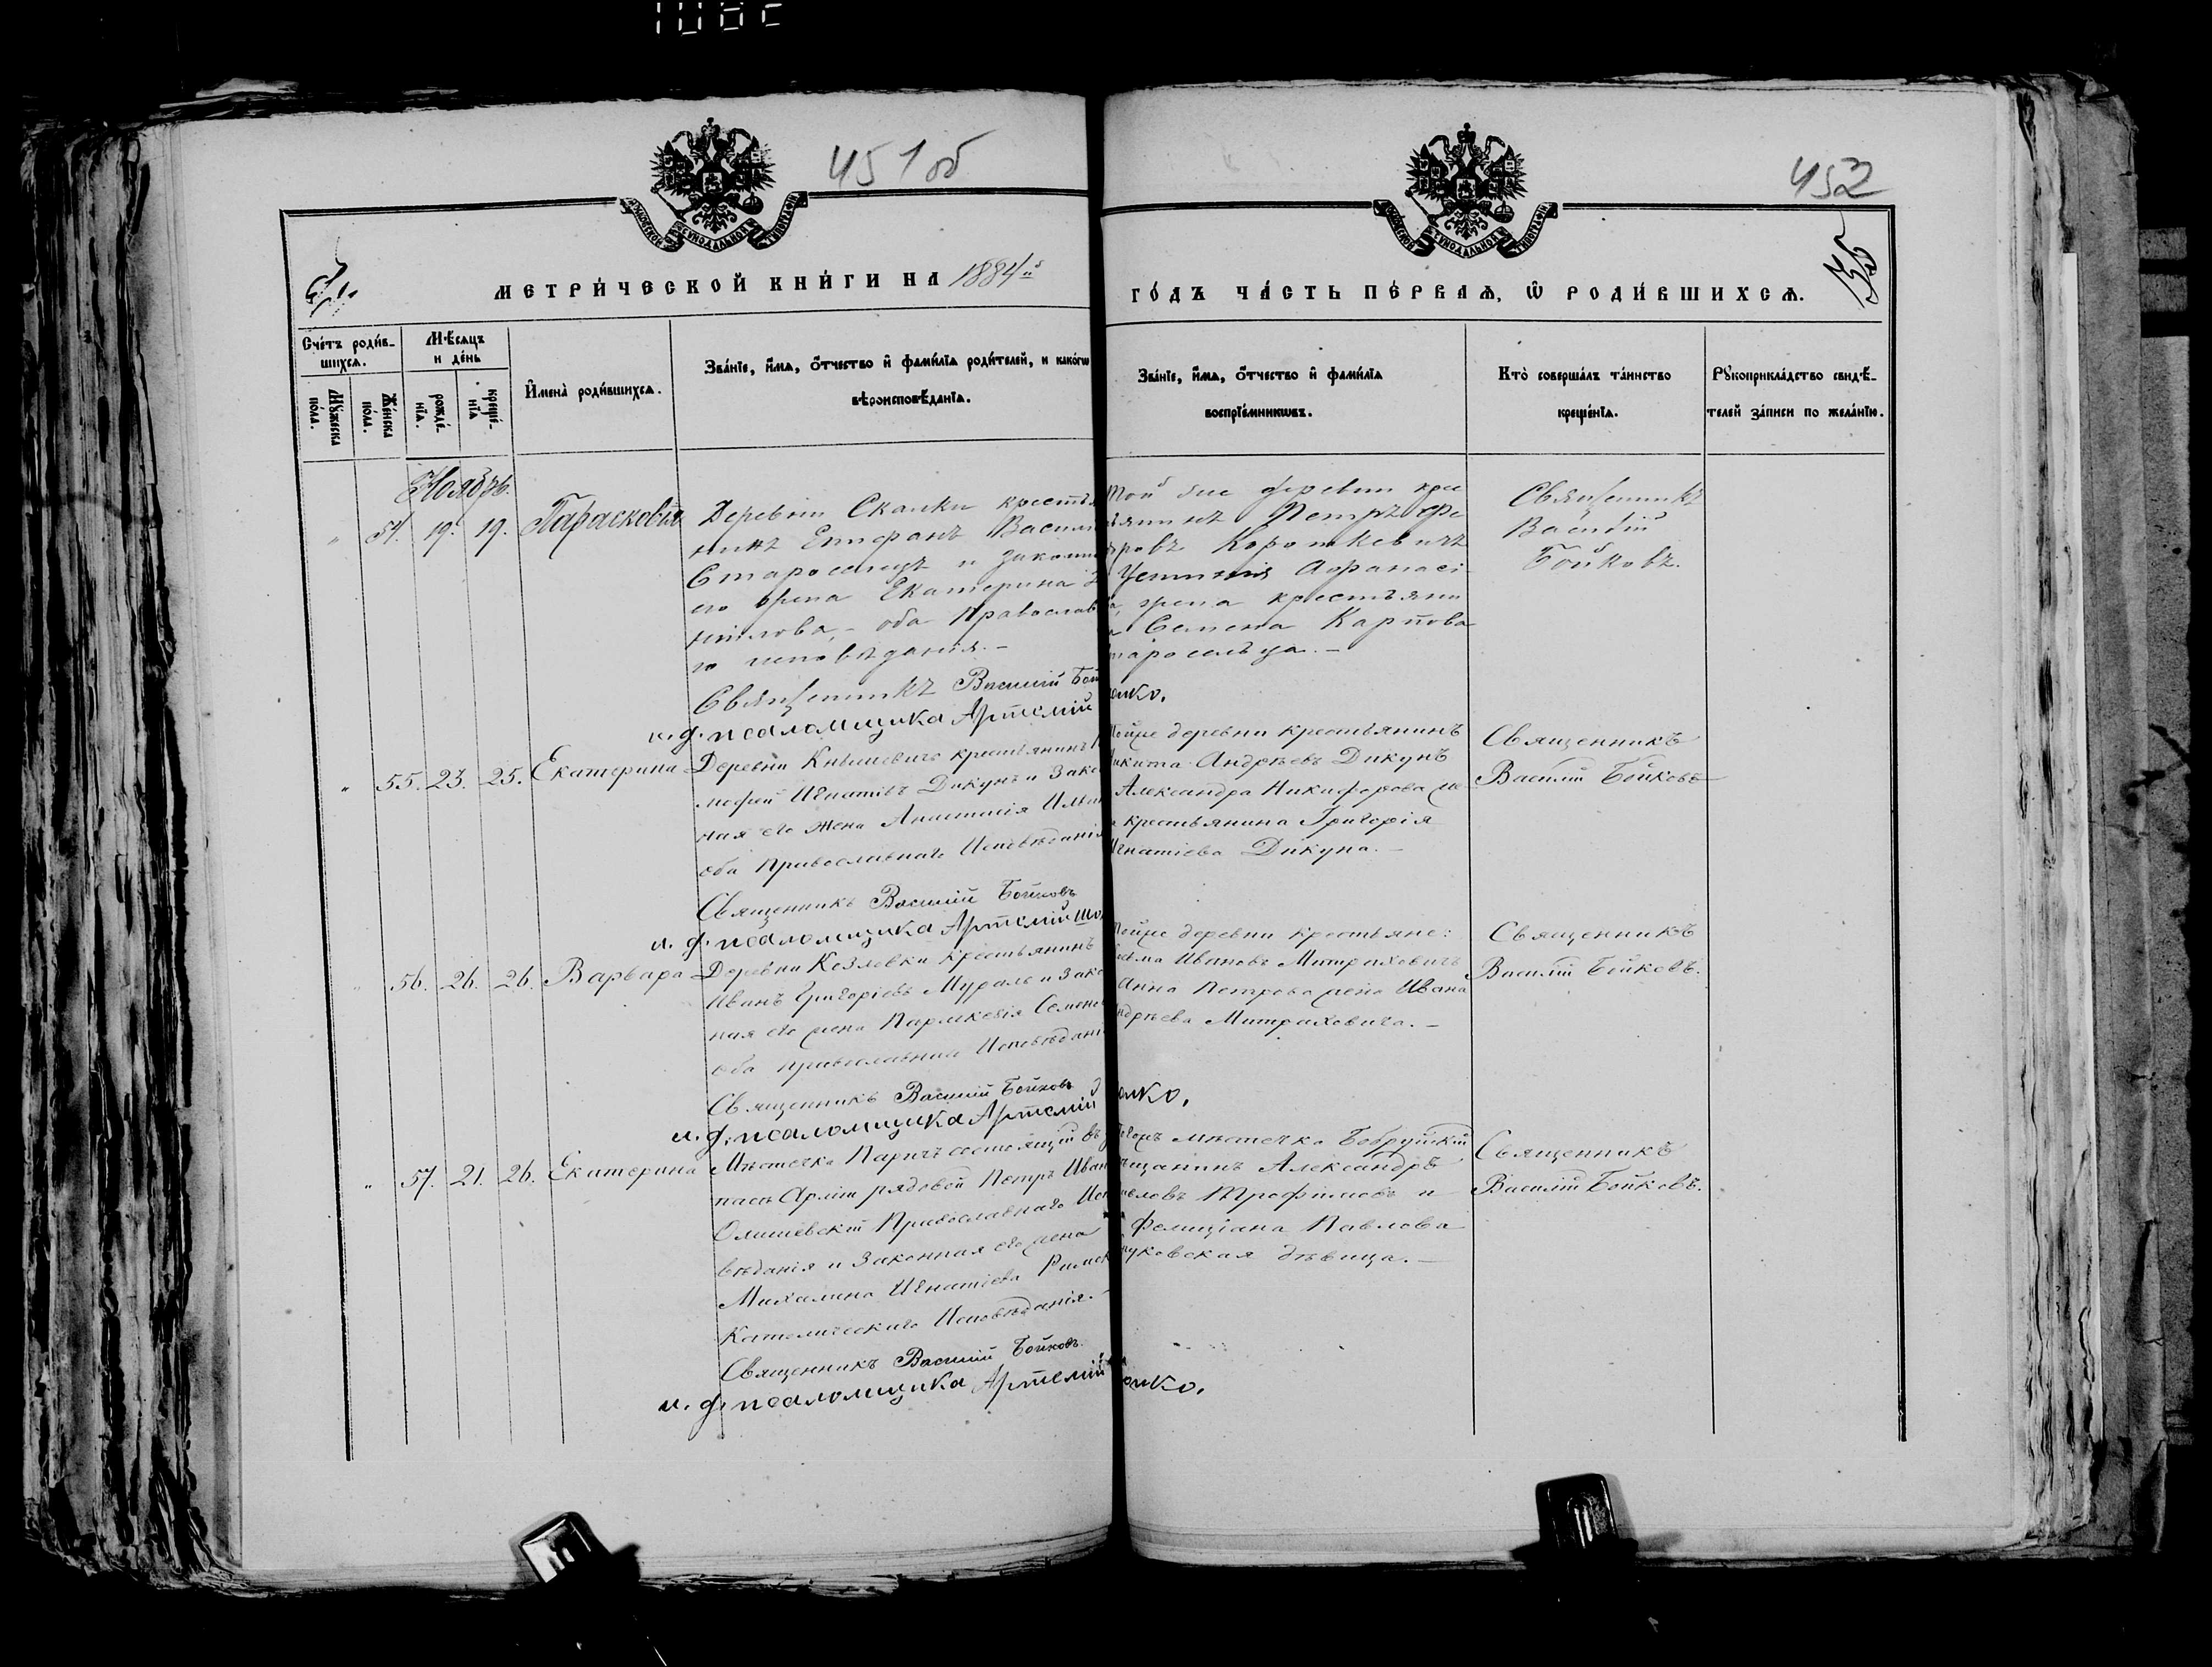 451об
452
МОСКОВСКОЙ СѴНОДАЛЬНОЙ ТИПОГРАФІИ
МОСКОВСКОЙ СѴНОДАЛЬНОЙ ТИПОГРАФІИ
МЕТРИ́ЧЕСКОЙ КНИ́ГИ НА 1884й
ГО́ДЪ ЧА́СТЬ ПЕ́РВАѦ, Ѡ҆ РОДИ́ВШИХСѦ.
Сче́тъ роди́в-
шихсѧ.
Мꙋ́жеска по́ла.
Же́нска по́ла.
Мѣ́сѧцъ и де́нь
рожде́-нїѧ.
креще́-нїѧ
И҆мена̀ роди́вшихсѧ.
Зва́нїе, и҆́мѧ, ѻ҆́тчество и҆ фами́лїѧ роди́телей, и како́гѡ
вѣроисповѣ́данїѧ.
Зва́нїе, и҆́мѧ, ѻ҆́тчество и҆ фами́лїѧ
воспрїе́мникѡвъ.
Кто̀ соверша́лъ та́инство
креще́нїѧ.
Рꙋкоприкла́дство свидѣ́-
телей за́писи по жела́нїю.
Ноябрь.
" 54. 19. 19. Парасковія
Деревни Скалки крестья
нинъ Епифанъ Васил
Староселецъ и законн
его жена Екатерина
нилова, - оба Православ
го исповѣданія. -
Священникъ Василій Бой
и. д. псаломщика Артемій
Той же деревни крес
янинъ Петръ Фе
ровъ Короткевичъ
Устинія Афанасі
, жена крестьяни
Семена Карпова
таросельца. -
енко.
Священникъ
Василій
Бойковъ.
" 55. 23. 25. Екатерина
Деревни Кнышевичъ крестьянинъ
мофей Игнатіевъ Дикунъ и Зако
ная его жена Анастасія Ильи
оба православнаго Исповѣданія
Священникъ Василій Бойковъ
и. д. псаломщика Артемій
тойже деревни крестьянинъ
икита Андреевъ Дикунъ
Александра Никифорова же
крестьянина Григорія
Игнатіева Дикуна. -
Священникъ
Василій Бойковъ
" 56. 26. 26. Варвара
Деревни Козловки крестьянинъ
Иванъ Григоріевъ Мураль и Зако
ная его жена Параскевія Семено
оба православнаго Исповѣдані
Священникъ Василій Бойковъ
и. д. псаломщика Артемій
тойже деревни крестьяне:
Ивановъ Митраховичъ
Анна Петрова жена Ивана
ндреева Митраховича. -
енко.
Священникъ
Василій Бойковъ.
" 57. 21. 26. Екатерина
Мѣстечка Паричъ состоящій въ
пасѣ Арміи рядовой Петръ Иван
Олишевскій Православнаго Исп
вѣданія и Законная его жена
Михалина Игнатіева Римск
Католическаго Исповѣданія. -
Священникъ Василій Бойковъ.
и. д. псаломщика Артемій
тогожъ мѣстечка Бобруйскій
ѣщанинъ Александръ
Трофимовъ и
Фелиціана Павлова
дѣвица. -
енко.
Священникъ
Василій Бойковъ.